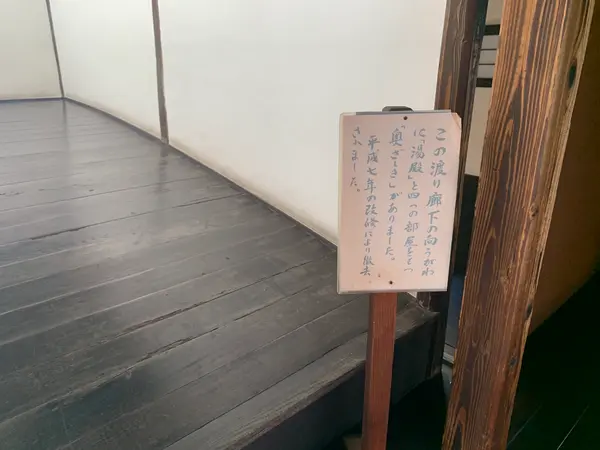 この渡り廊下の向うがわ
に、「湯殿」と四つの部屋をもつ
「奥ざしき」がありました。
平成七年の改修により撤去
されました。